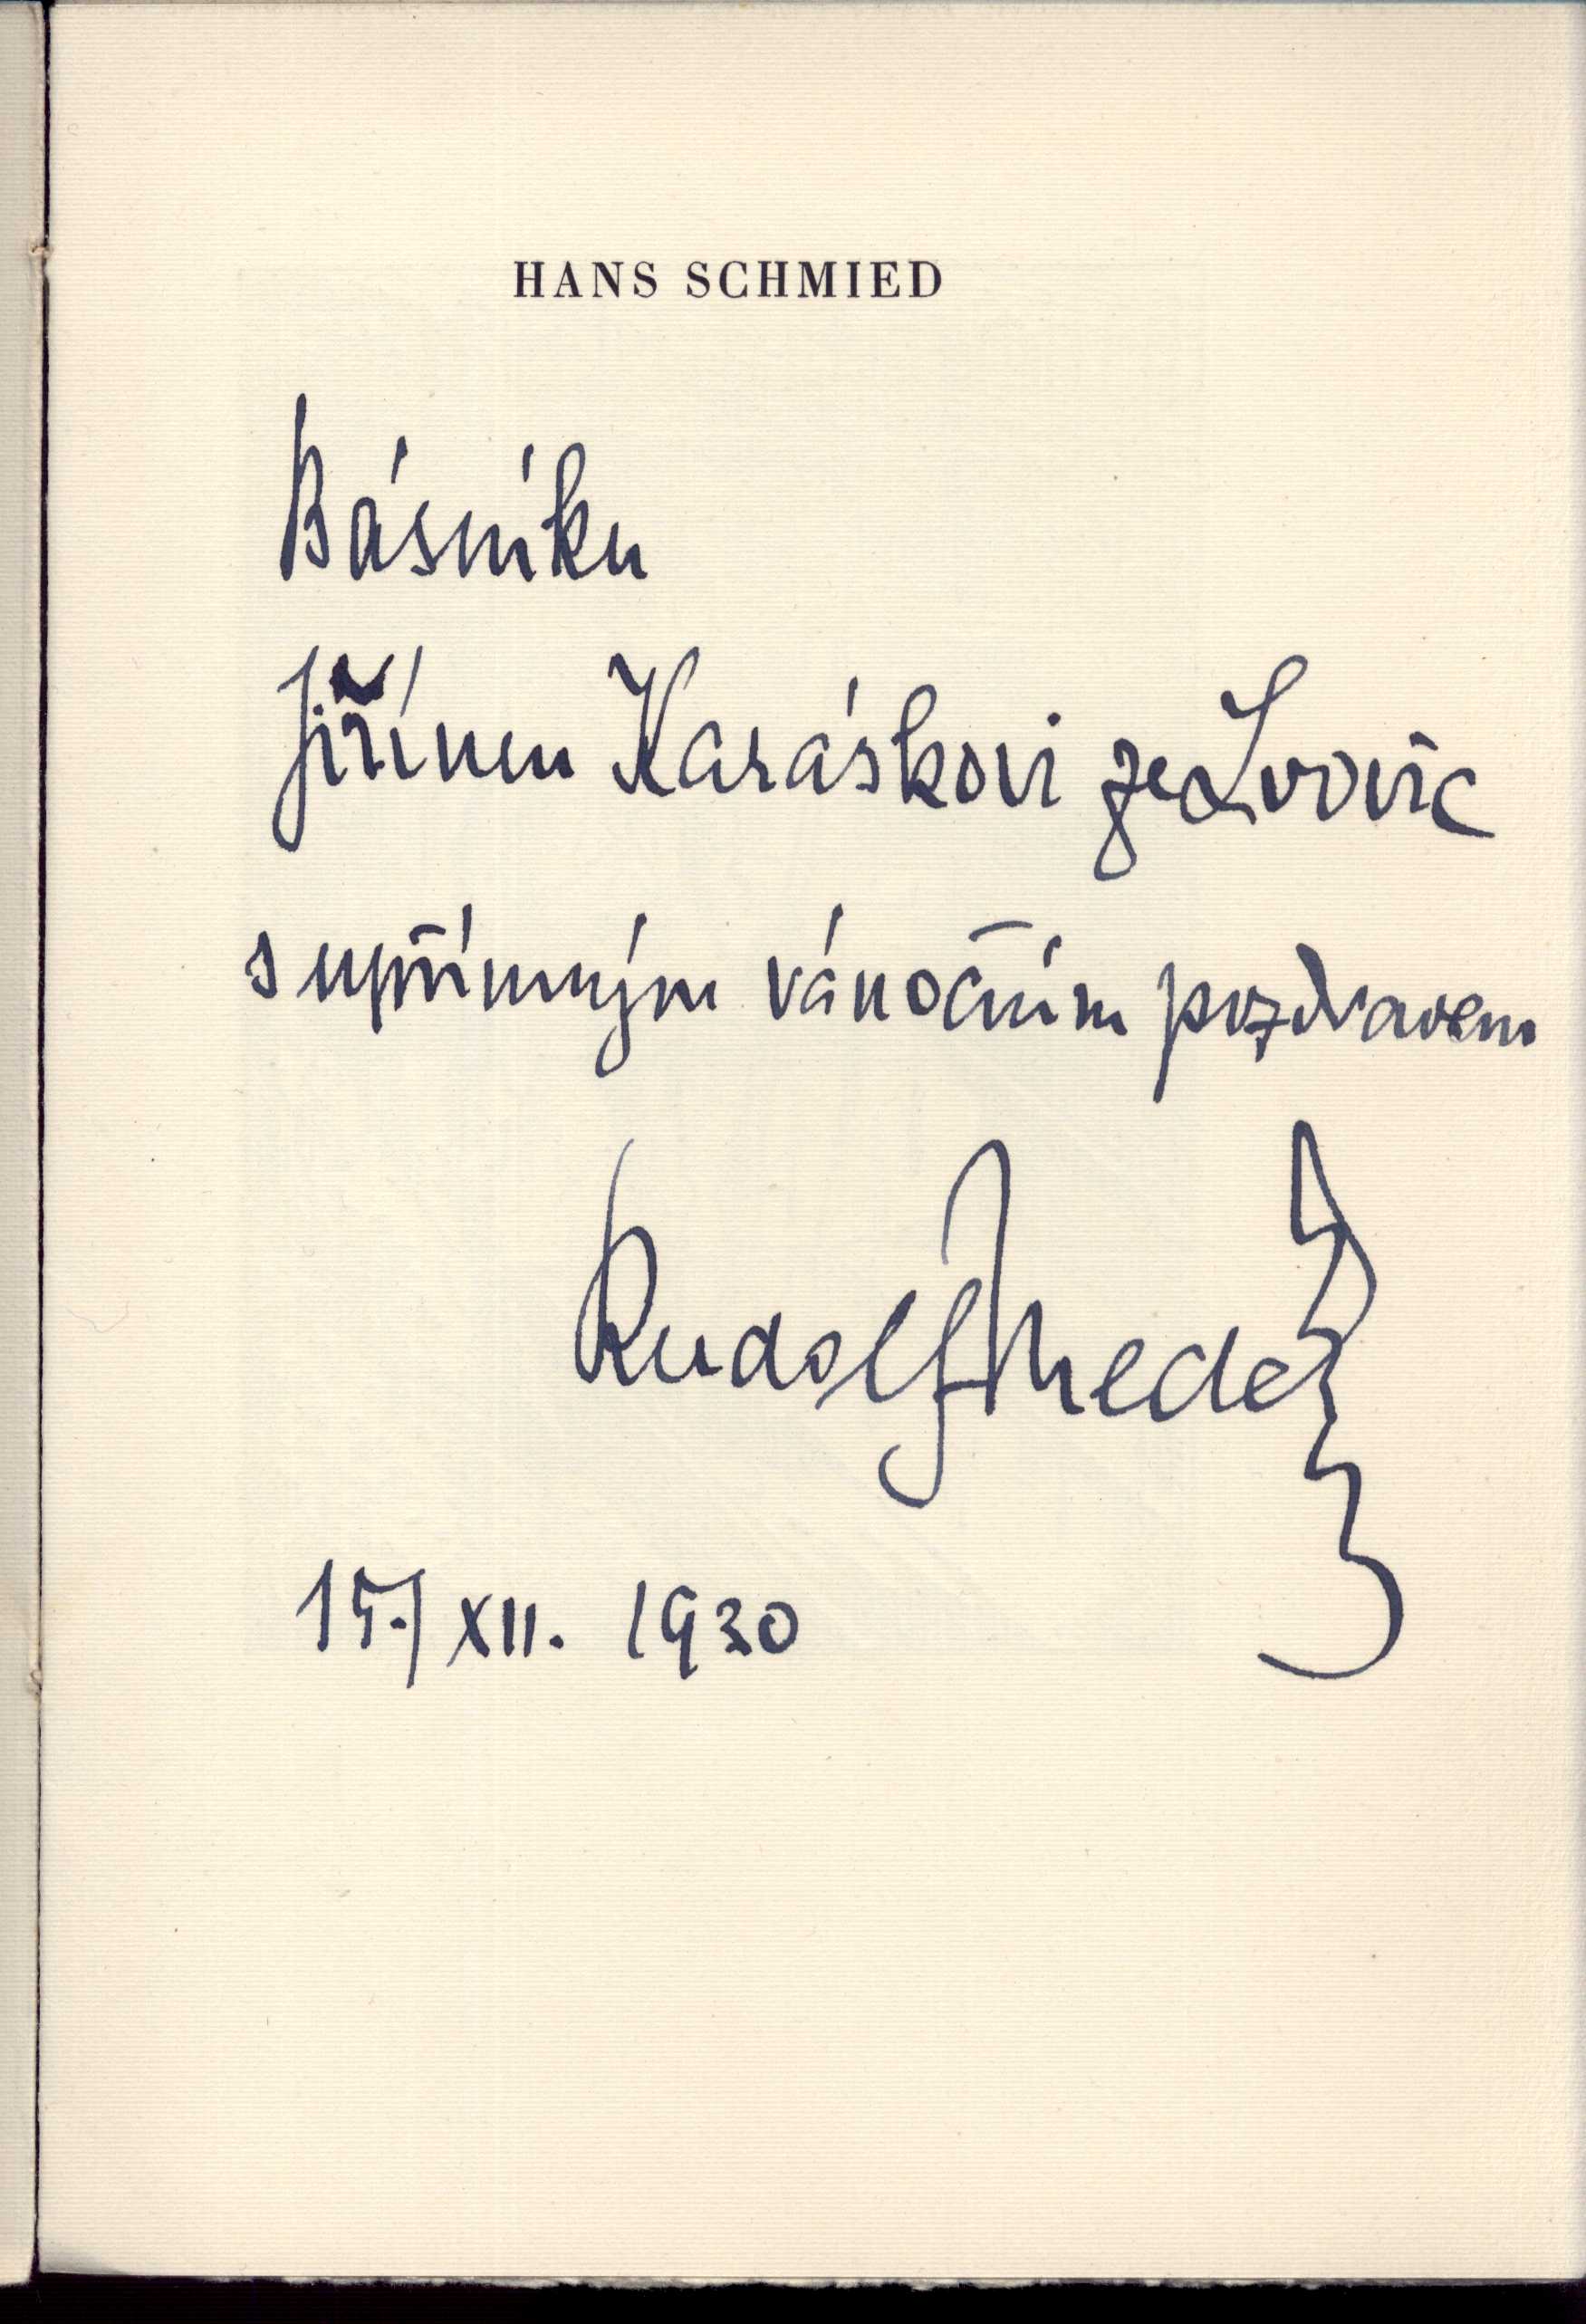 HANS SCHMIED
Básníku
Jiřímu Karáskovi ze Lvovic
s upřímným vánočním pozdravem
Rudolf Medek
15./XII. 1930